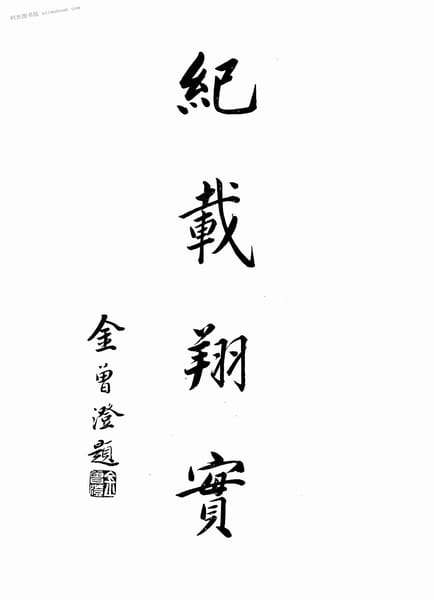 时光图书馆 alimybook.com
紀載翔實
金曾澄題